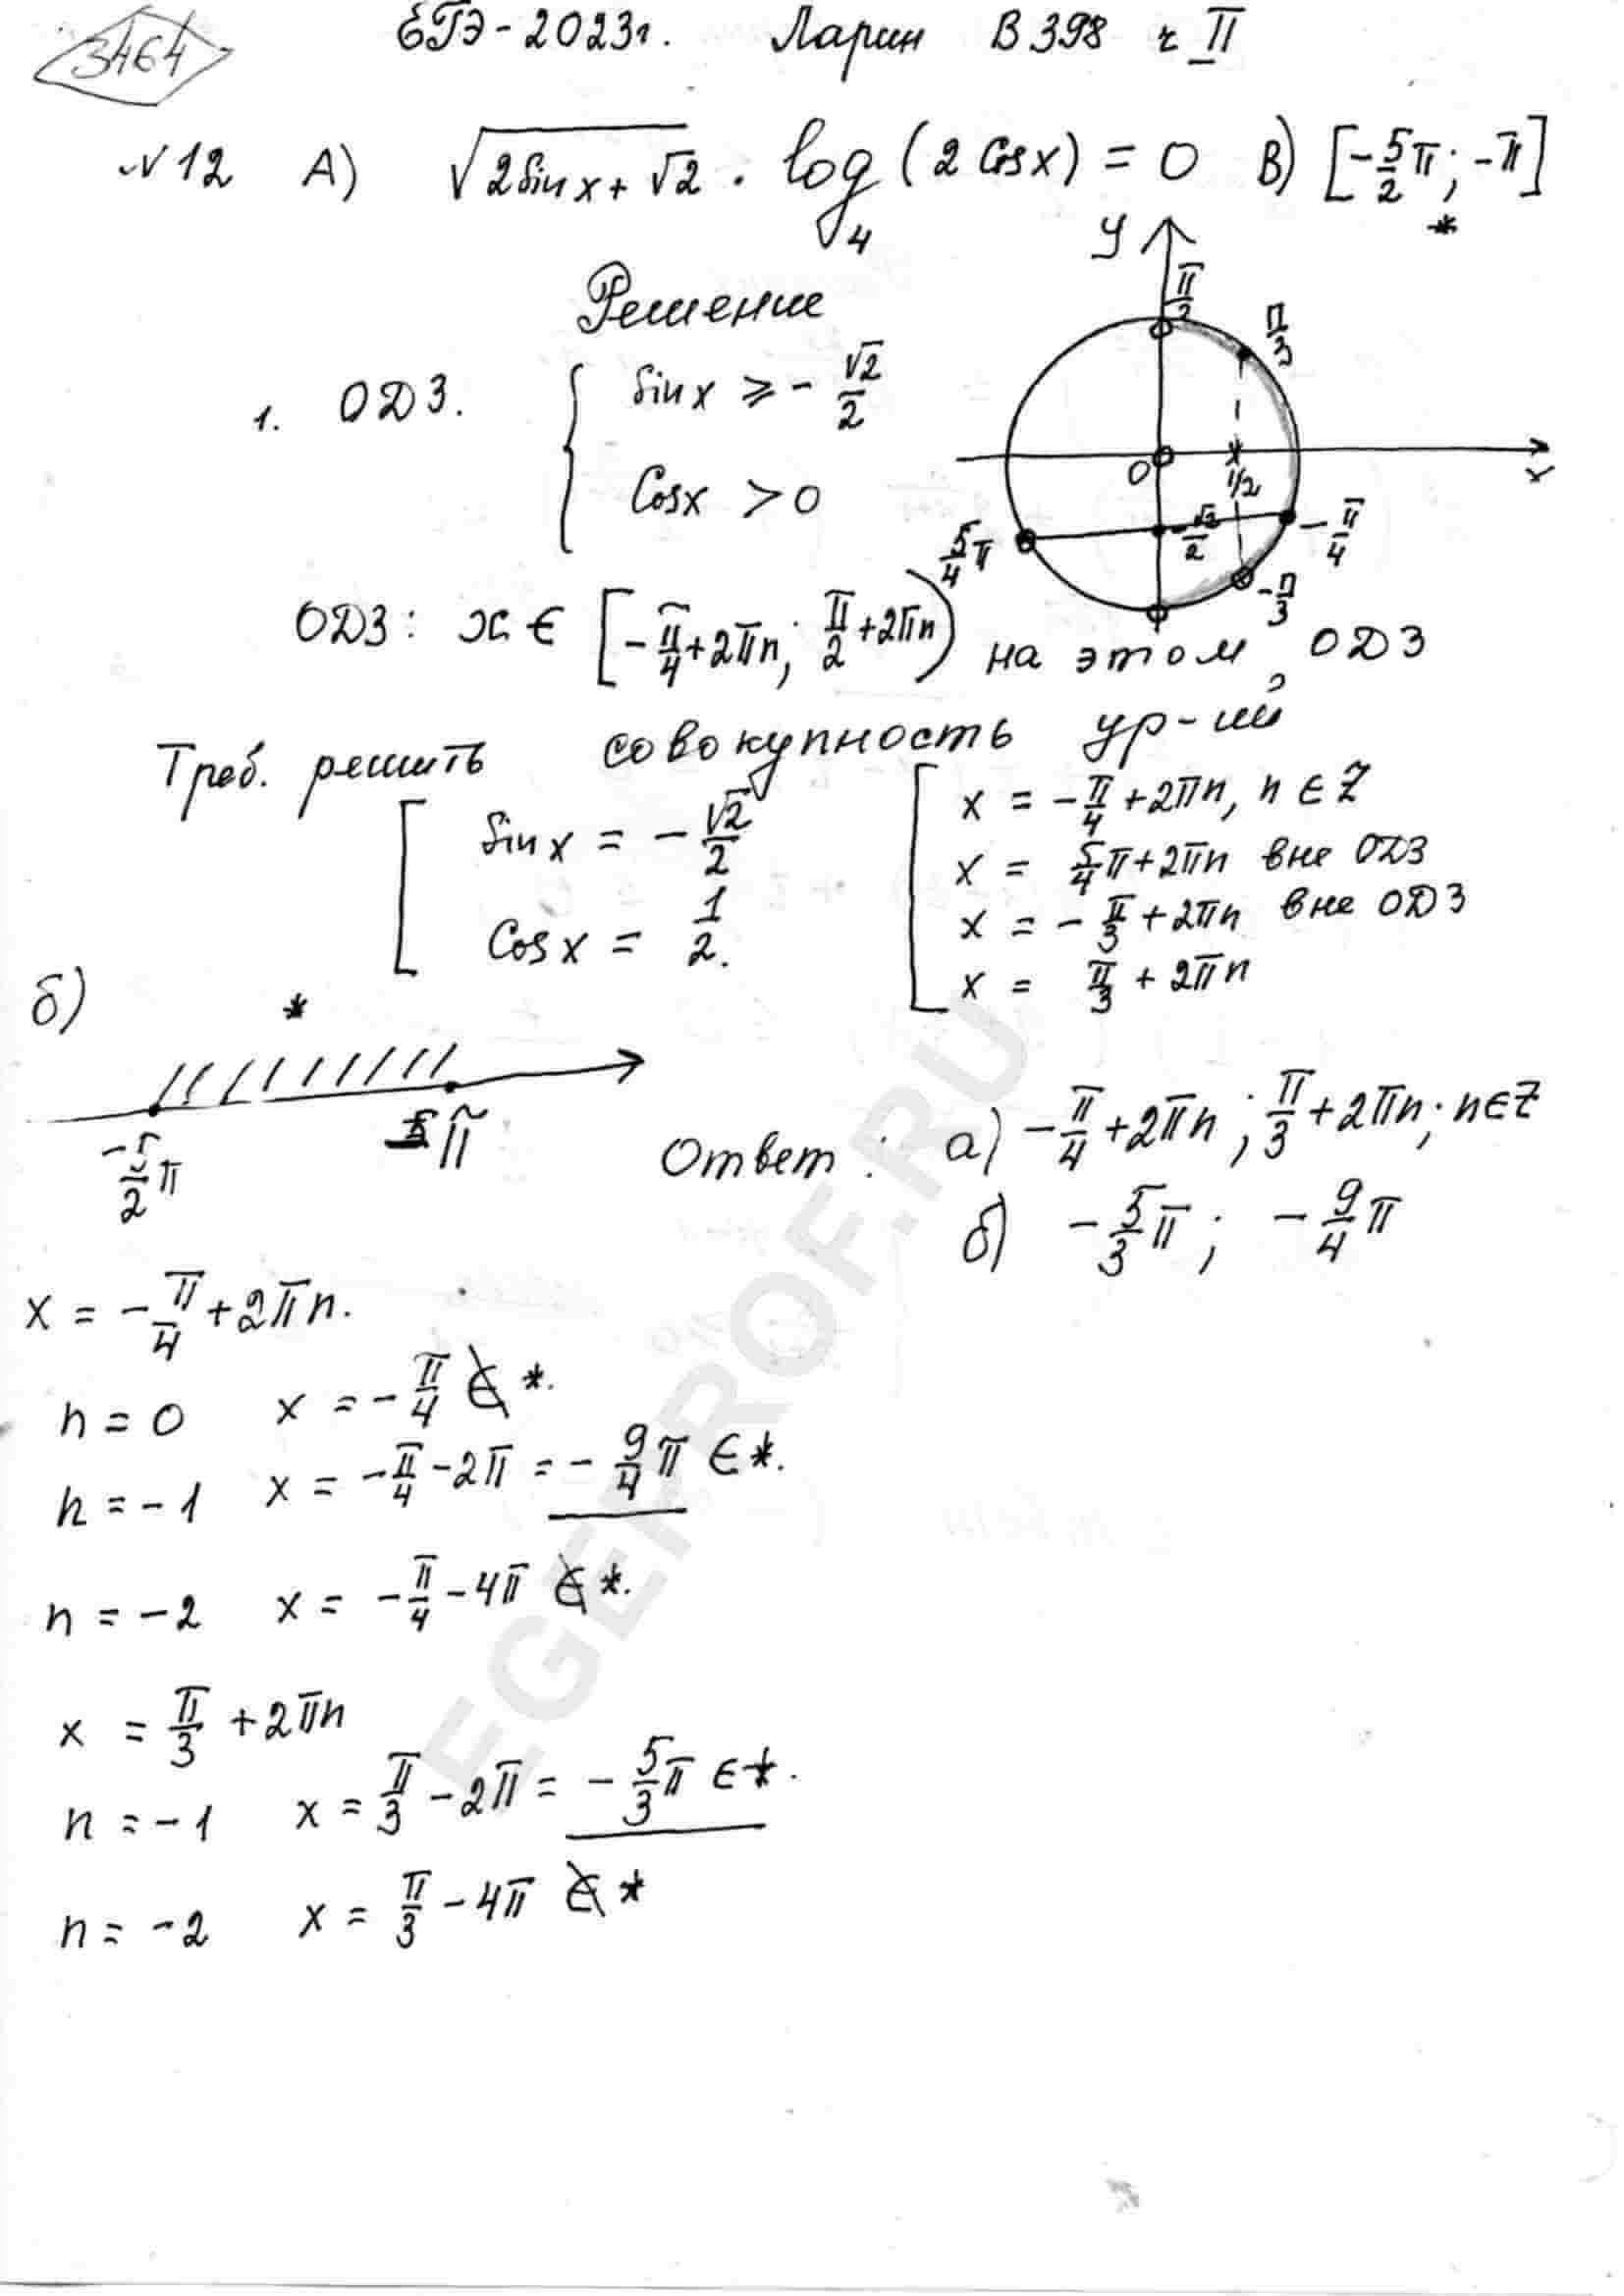 3464
ЕГЭ-2023г. Ларин В 398 ч II
№12 А) √(2Sinx + √2) · log₄(2Cosx) = 0 В) [-5/2 π; -π]
*
Решение
1. ОДЗ. { Sinx ⩾ -√2/2
Cosx > 0
y
π/2
π/3
0
1/2
x
-√2/2
-π/4
5/4 π
-π/3
ОДЗ: x ∈ [-π/4+2πn; π/2+2πn) на этом ОДЗ
Треб. решить совокупность ур-ий
[ Sinx = -√2/2
Cosx = 1/2.
[ x = -π/4+2πn, n∈Z
x = 5/4 π+2πn вне ОДЗ
x = -π/3+2πn вне ОДЗ
x = π/3 + 2πn
б)
*
-5/2 π
-π
Ответ: а) -π/4+2πn; π/3+2πn; n∈Z
б) -5/3 π; -9/4 π
x = -π/4+2πn.
n = 0 x = -π/4 ∉ *.
n = -1 x = -π/4-2π = -9/4 π ∈ *.
n = -2 x = -π/4-4π ∉ *.
x = π/3 +2πn
n = -1 x = π/3 -2π = -5/3 π ∈ *.
n = -2 x = π/3 -4π ∉ *
EGEPROF.RU